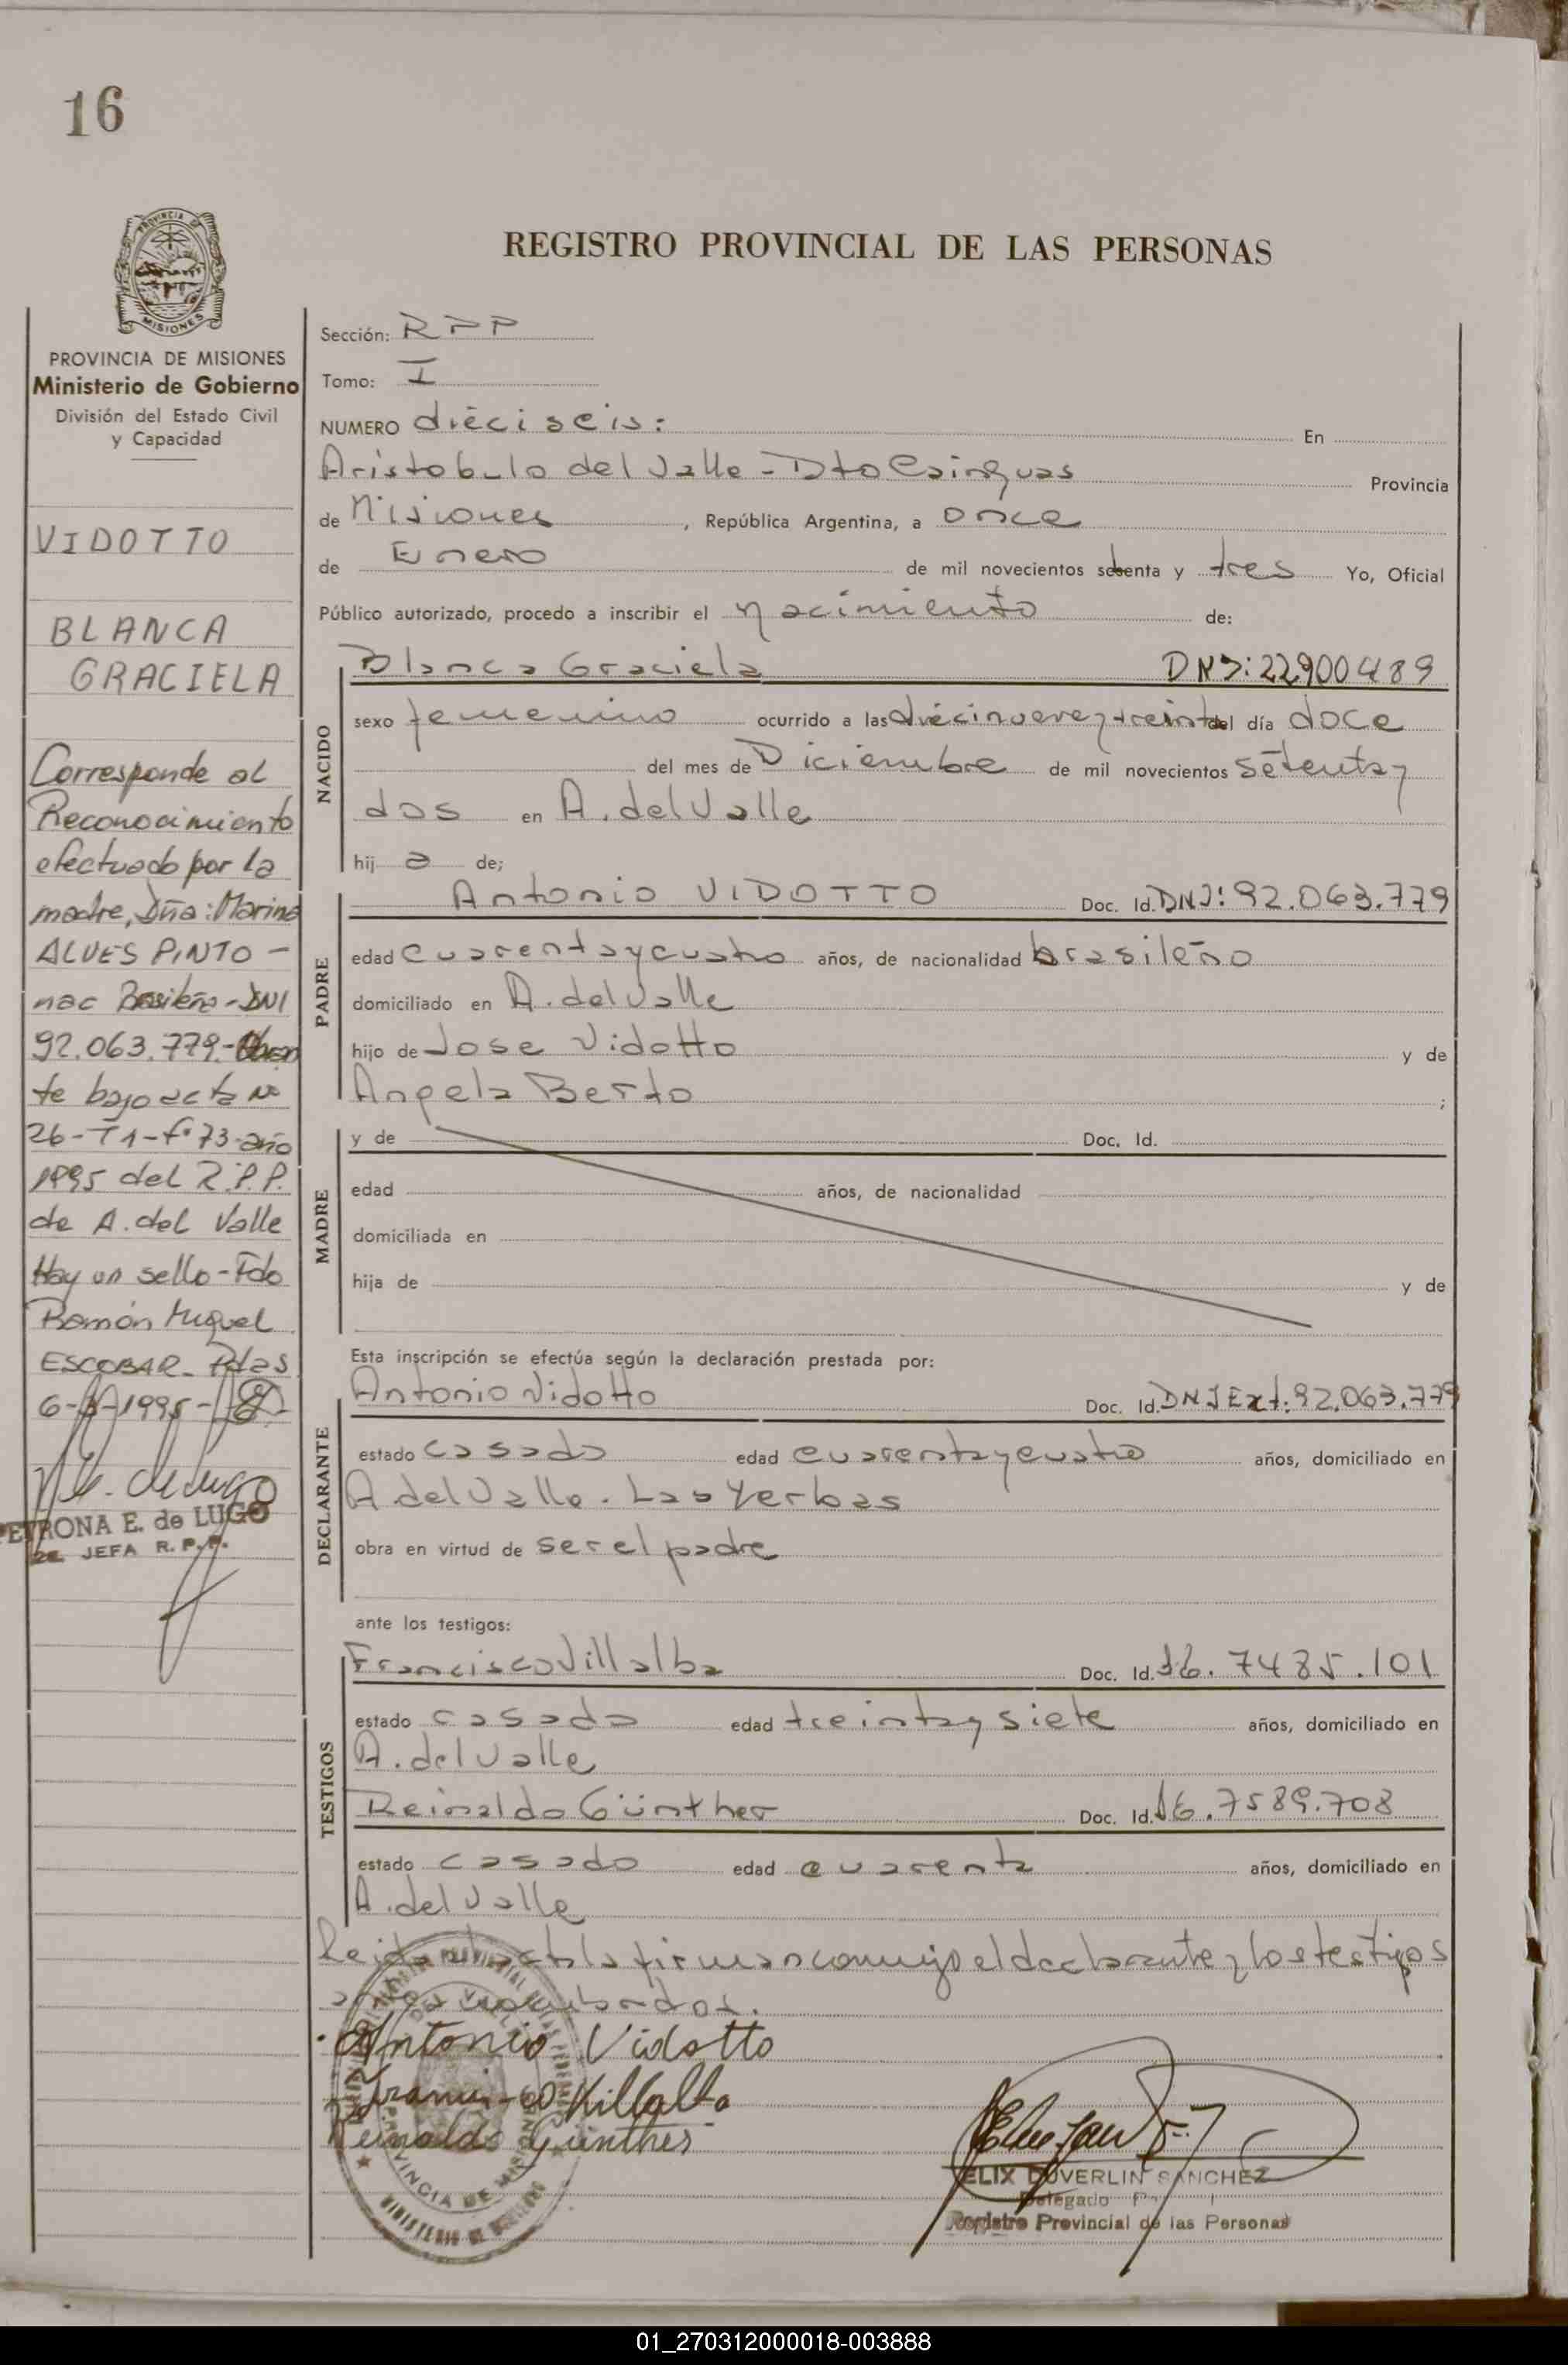 16
PROVINCIA DE
MISIONES
REGISTRO PROVINCIAL DE LAS PERSONAS
PROVINCIA DE MISIONES
Ministerio de Gobierno
División del Estado Civil
y Capacidad
VIDOTTO
BLANCA
GRACIELA
Corresponde al
Reconocimiento
efectuado por la
madre, Dña: Marina
ALVES PINTO -
nac Brasileña - DNI
92.063.779 -
te bajo acta Nº
26 - T1 - fº 73 - año
1995 del R.P.P.
de A. del Valle
Hay un sello - Fdo
Ramón Miguel
ESCOBAR - Pdas
1995 -
PETRONA E. de LUGO
JEFA R. P. P.
Sección: RPP
Tomo: I
NUMERO diéciseis: En
Aristobulo del Valle - Dto Cainguas Provincia
de Misiones, República Argentina, a once
de Enero de mil novecientos setenta y tres Yo, Oficial
Público autorizado, procedo a inscribir el nacimiento de:
NACIDO
Blanca Graciela DNI: 22900489
sexo femenino ocurrido a las diécinueve y treinta del día doce
del mes de Diciembre de mil novecientos setenta y
dos en A. del Valle
hij a de;
PADRE
Antonio VIDOTTO Doc. Id. DNI: 92.063.779
edad cuarenta y cuatro años, de nacionalidad brasileño
domiciliado en A. del Valle
hijo de Jose Vidotto y de
Angela Berto ;
MADRE
y de Doc. Id.
edad años, de nacionalidad
domiciliada en
hija de y de
Esta inscripción se efectúa según la declaración prestada por:
DECLARANTE
Antonio Vidotto Doc. Id. DNI Ext: 92.063.779
estado casado edad cuarenta y cuatro años, domiciliado en
A del Valle. Las Yerbas
obra en virtud de ser el padre
ante los testigos:
TESTIGOS
Francisco Villalba Doc. Id. 7485.101
estado casado edad treinta y siete años, domiciliado en
A. del Valle
Reinaldo Günther Doc. Id. 7589.708
estado casado edad cuarenta años, domiciliado en
A. del Valle
Leida el acta la firman conmigo el declarante y los testigos
nombrados.
Antonio Vidotto
Francisco Villalba
Reinaldo Günther
PROVINCIA DE MISIONES
MINISTERIO DE GOBIERNO
FELIX DUVERLIN SANCHEZ
Delegado
Registro Provincial de las Personas
01_270312000018-003888